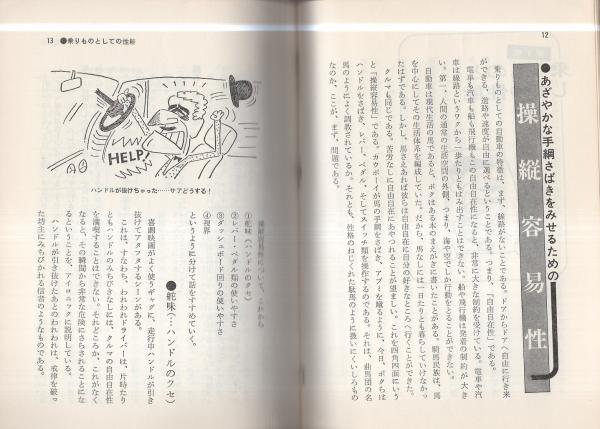 12
●あざやかな手綱さばきをみせるための
操縦容易性
乗りものとしての自動車の特徴は、まず、線路がないことである。ドアからドアへ自由に行き来
ができる、道路や速度が自由に選べるということである。つまり、「自由自在性」である。
電車も汽車も船も飛行機もこの自由自在性になると、非常に大きな制約を受けている。電車や汽
車は線路というワクから一歩たりともはみ出すことはできない。船や飛行機は発着の制約が大き
い。第一、人間の通常の生活空間の外側、つまり、海や空でしか行動をとることができない。
自動車は現代生活の馬であると、ボクはある本のまえがきに書いたことがある。騎馬民族は、馬
を中心にしてその生活体系を編成していた。だから、もう、馬なしには一日たりとも暮らしていけなかっ
たはずである。しかし、馬さえあれば彼らは自由自在に自分の好きなところへ行くことができた。
クルマも同じである。苦労なしに自由自在にあやつれることが望ましい。これを四角四面にいう
と「操縦容易性」である。カウボーイが馬の手綱をさばき、アブミを蹴るように、今日、ボクらは
ハンドルをさばき、レバー、ペダル、そしてスイッチ類を操作するのである。それは、曲馬団の名
馬のようによく調教されているか。それとも、性格のねじくれた駄馬のように扱いにくいしろもの
なのか、ここが、まず、問題である。
13 ●乗りものとしての性能
HELP
ハンドルが抜けちゃった……サアどうする！
操縦容易性について、これから
①舵味（ハンドルのクセ）
②レバー・ペダル類の使いやすさ
③ダッシュボード回りの使いやすさ
④視界
というように分けて話をすすめていく。
●舵味（…ハンドルのクセ）
喜劇映画がよく使うギャグに、走行中ハンドルが引き
抜けてアタフタするシーンがある。
これは、すなわち、われわれドライバーは、片時たり
ともハンドルのみちびきなしには、クルマの自由自在性
を満喫することはできない。それどころか、これがなく
なると、その瞬間から非常な危険にさらされることにな
るということを、アイロニックに説明している。
ハンドルが引き抜けたあとのわれわれは、戒律を破っ
た坊主にみちびかれる信者のようなものである。